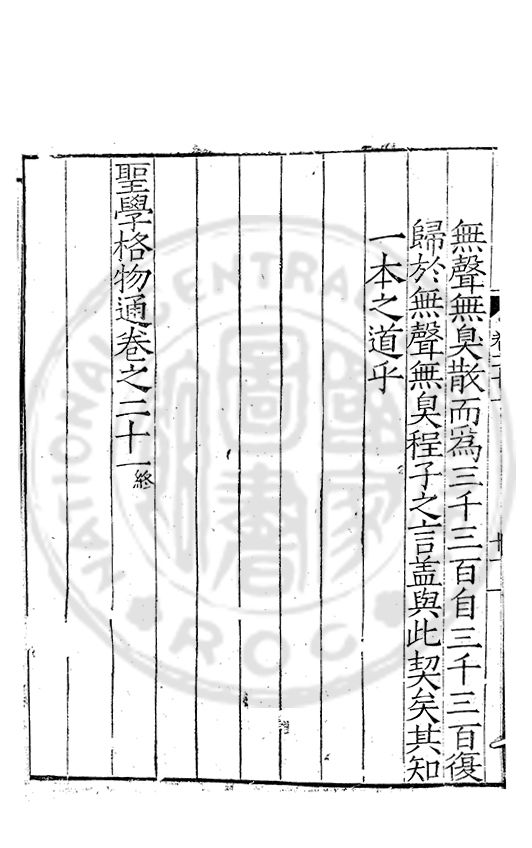 無聲無臭散而爲三千三百自三千三百復
歸於無聲無臭程子之言蓋與此契矣其知
一本之道乎
聖學格物通卷之二十一終
NATIONAL CENTRAL
R.O.C